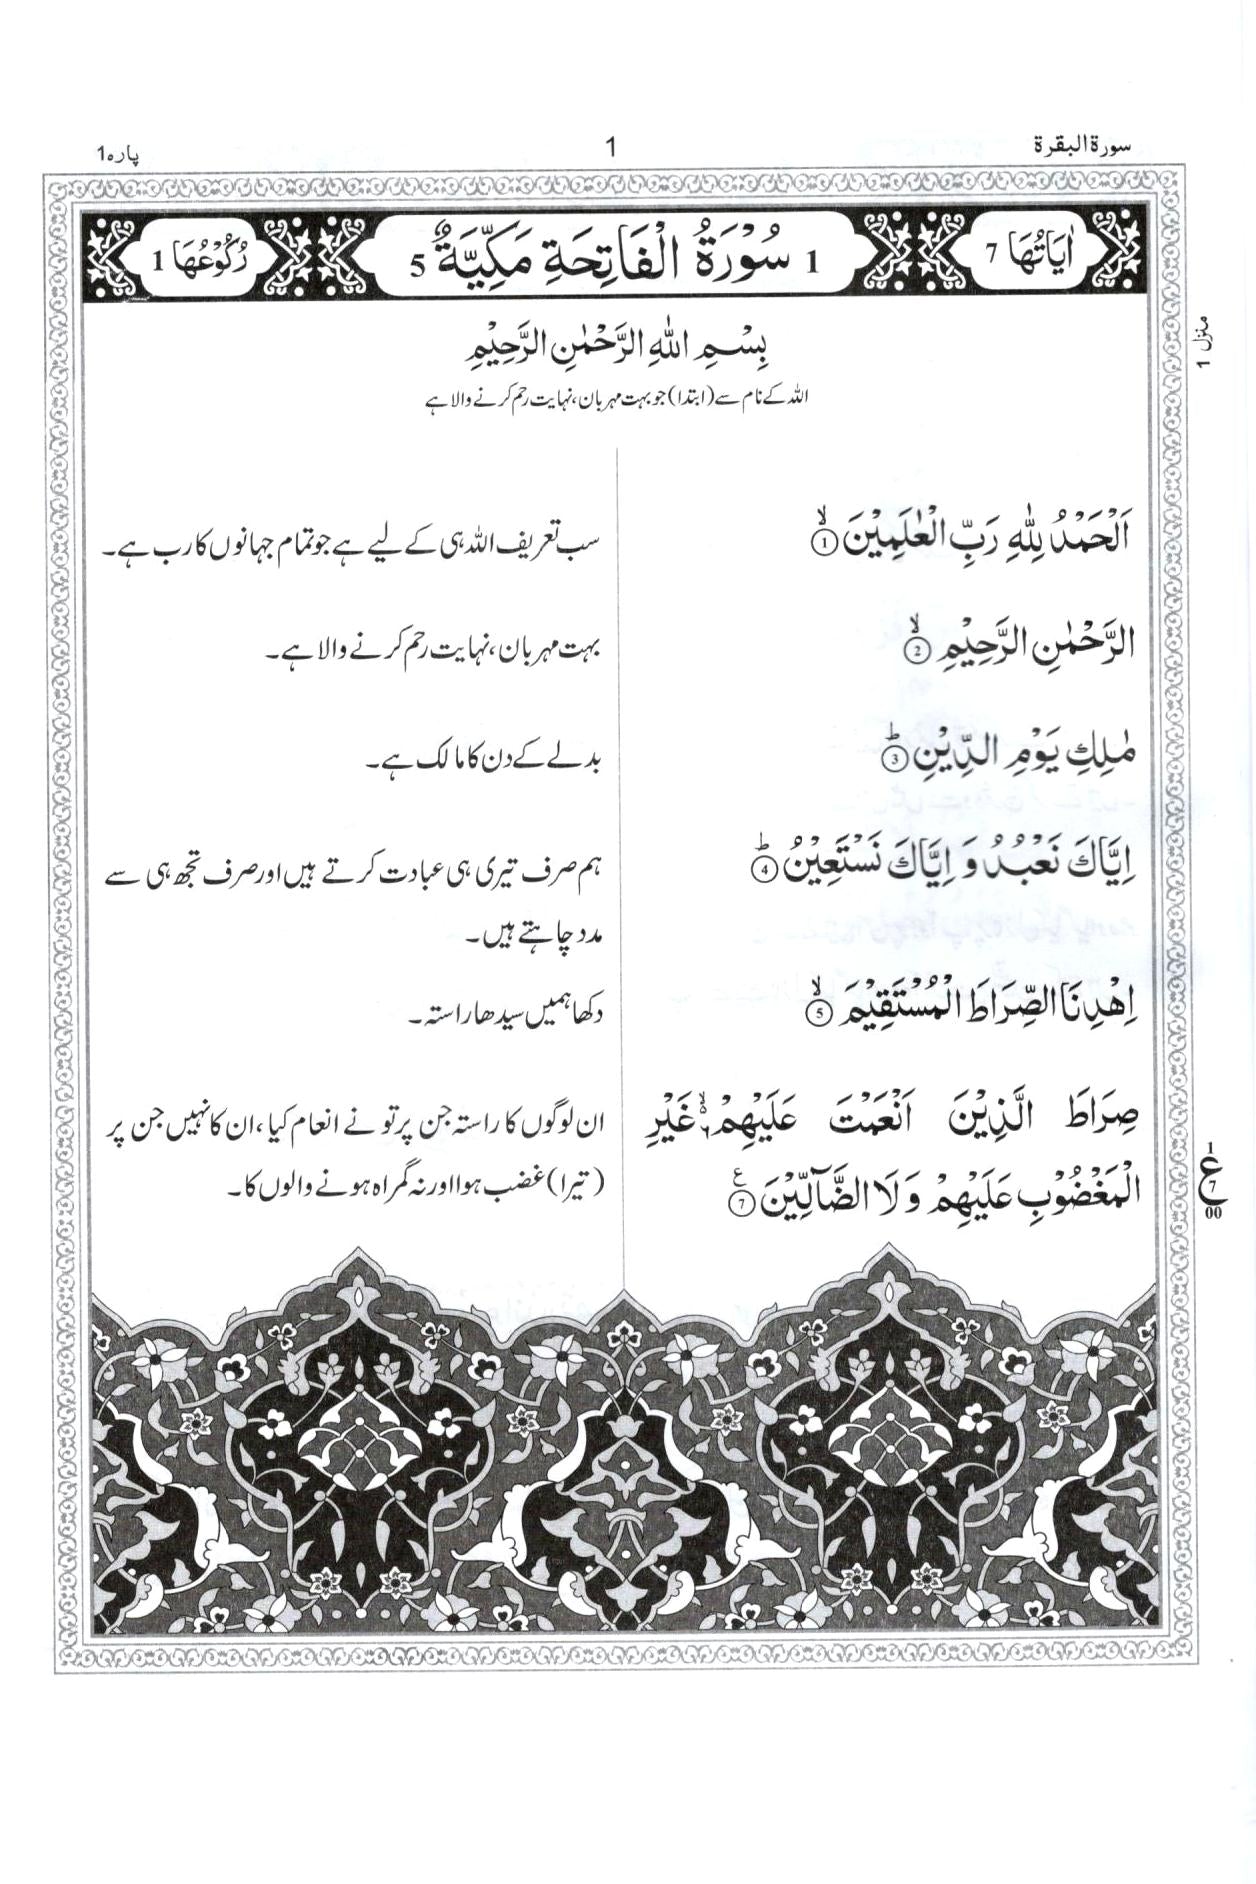 سورة البقرة
1
پارہ 1
اٰيَاتُهَا 7
1 سُوْرَةُ الْفَاتِحَةِ مَكِّيَّةٌ 5
رُكُوْعُهَا 1
منزل 1
بِسْمِ اللّٰهِ الرَّحْمٰنِ الرَّحِيْمِ
اللہ کے نام سے (ابتدا) جو بہت مہربان، نہایت رحم کرنے والا ہے
اَلْحَمْدُ لِلّٰهِ رَبِّ الْعٰلَمِيْنَ ۙ①
سب تعریف اللہ ہی کے لیے ہے جو تمام جہانوں کا رب ہے۔
الرَّحْمٰنِ الرَّحِيْمِ ۙ②
بہت مہربان، نہایت رحم کرنے والا ہے۔
مٰلِكِ يَوْمِ الدِّيْنِ ؕ③
بدلے کے دن کا مالک ہے۔
اِيَّاكَ نَعْبُدُ وَ اِيَّاكَ نَسْتَعِيْنُ ؕ④
ہم صرف تیری ہی عبادت کرتے ہیں اور صرف تجھ ہی سے
مدد چاہتے ہیں۔
اِهْدِنَا الصِّرَاطَ الْمُسْتَقِيْمَ ۙ⑤
دکھا ہمیں سیدھا راستہ۔
صِرَاطَ الَّذِيْنَ اَنْعَمْتَ عَلَيْهِمْ ۙ۬ۦ غَيْرِ
الْمَغْضُوْبِ عَلَيْهِمْ وَ لَا الضَّآلِّيْنَ ۧ⑦
ان لوگوں کا راستہ جن پر تو نے انعام کیا، ان کا نہیں جن پر
(تیرا) غضب ہوا اور نہ گمراہ ہونے والوں کا۔
1
ع
7
00